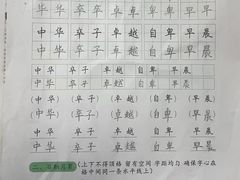 华 华 卒 卒 卓 卓 卑 卑 早 早
中 华 卒 子 卓 越 自 卑 早 晨
中 华 卒 子 卓 越 自 卑 早 晨
中华 卒子 卓越 自卑 早晨
(中华 卒子 卓越 自卑 早晨)
(中华 卒子 卓越 自卑 早晨)
(中华 卒子 卓越 自卑 早晨)
(上下不得顶格 留有空间 字距均匀 确保字心在
格中间同一条水平线上)